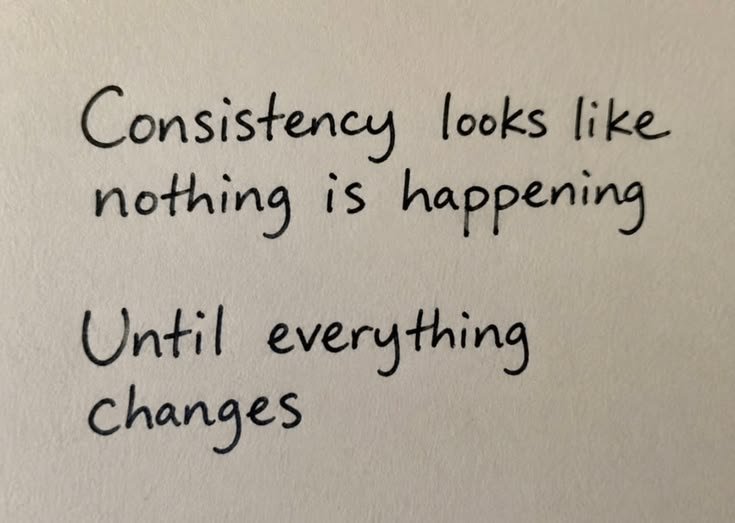 Consistency looks like
nothing is happening
Until everything
changes